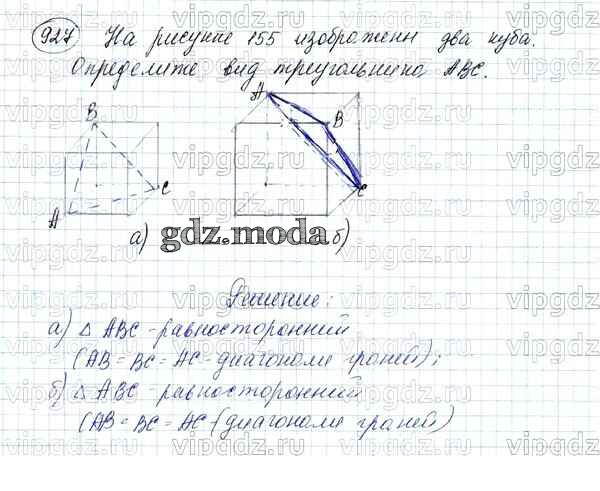 927 На рисунке 155 изображены два куба.
Определите вид треугольника ABC.
B
A
C
а)
A
B
C
б)
gdz.moda
Решение:
а) △ ABC - равносторонний
(AB = BC = AC - диагонали граней);
б) △ ABC - равносторонний
(AB = BC = AC - (диагонали граней)
vipgdz.ru